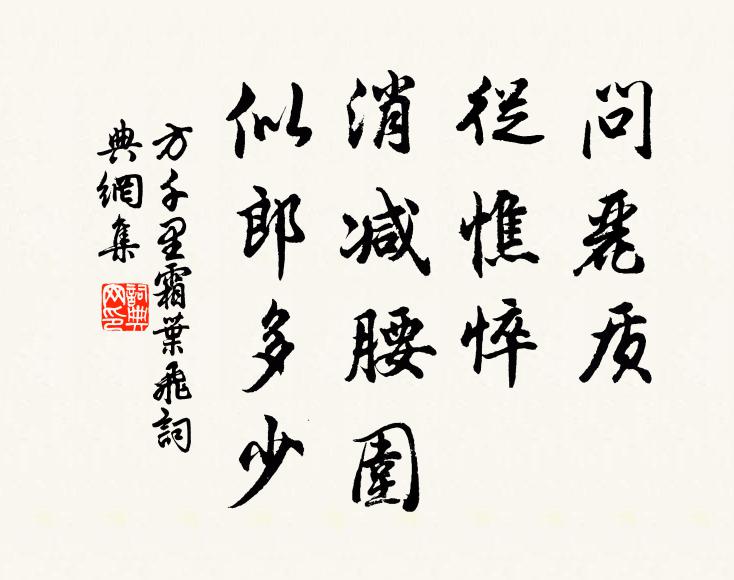 問麗质
從憔悴
消减腰圍
似郎多少
方千里霜葉飛詞
典網集
詞典网印